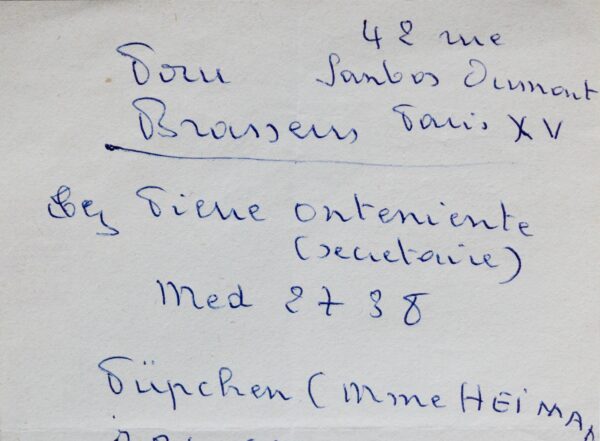 42 rue
Pour Santos Dumont
Brassens Paris XV
Pierre Onteniente
(secretaire)
Med 2738
Püpchen (Mme HEIMA